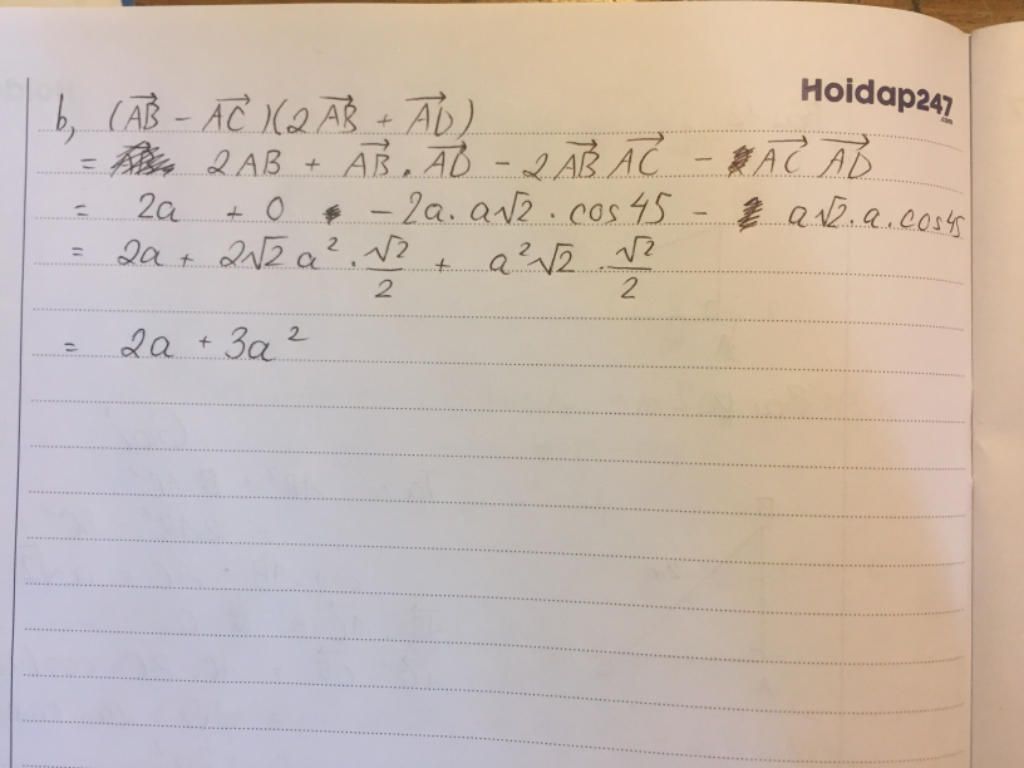 Hoidap247
.com
b, (\overrightarrow{AB} - \overrightarrow{AC})(2\overrightarrow{AB} + \overrightarrow{AD})
= 2AB + \overrightarrow{AB} . \overrightarrow{AD} - 2\overrightarrow{AB} \overrightarrow{AC} - \overrightarrow{AC} \overrightarrow{AD}
= 2a + 0 - 2a. a√2 . cos 45 - a√2. a. cos45
= 2a + 2√2 a² . √2/2 + a²√2 . √2/2
= 2a + 3a²